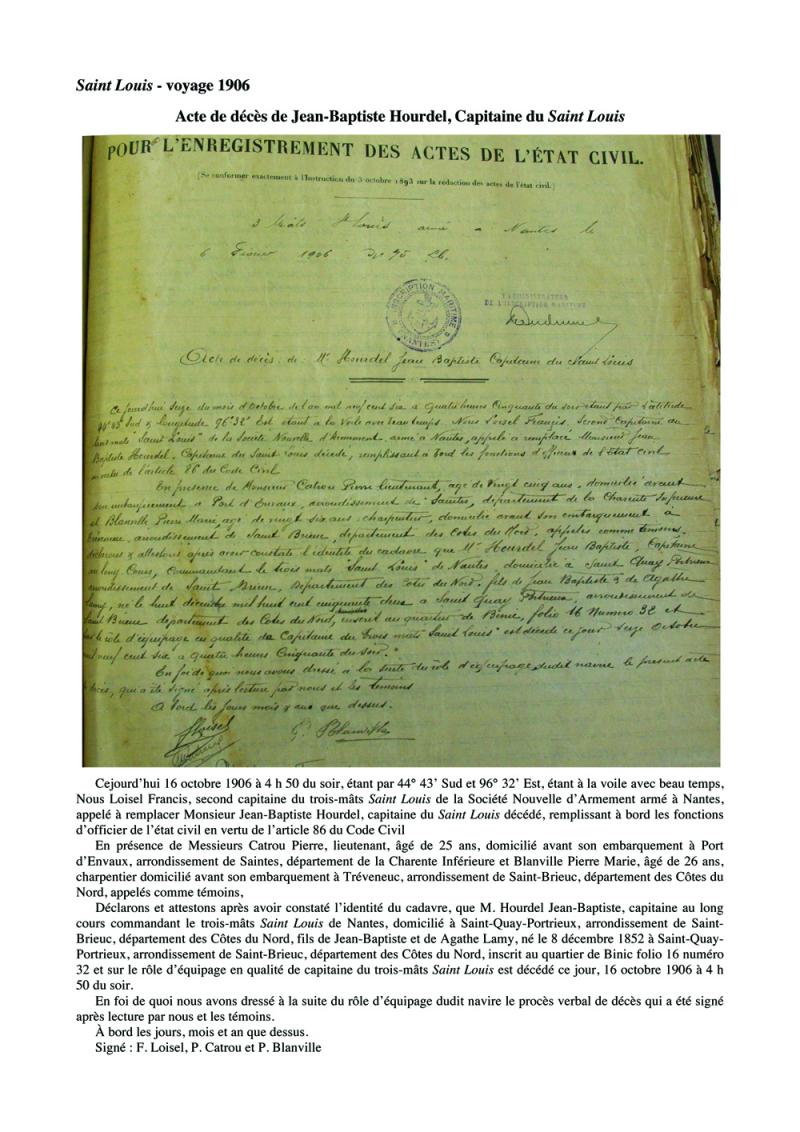 Saint Louis - voyage 1906
Acte de décès de Jean-Baptiste Hourdel, Capitaine du Saint Louis
POUR L'ENREGISTREMENT DES ACTES DE L'ÉTAT CIVIL.
(Se conformer exactement à l'Instruction du 3 octobre 1893 sur la rédaction des actes de l'état civil.)
3 Mâts St Louis armé à Nantes le
6 Février 1906 No 75
INSCRIPTION MARITIME
NANTES
L'ADMINISTRATEUR
DE L'INSCRIPTION MARITIME
Acte de décès de Mr Hourdel Jean Baptiste Capitaine du Saint Louis
Ce jourd'hui Seize du mois d'Octobre de l'an mil neuf cent six à quatre heures Cinquante du soir étant par Latitude
44° 43' Sud & Longitude 96° 32' Est étant à la Voile avec beau temps. Nous Loisel Francis, Second Capitaine du
trois mâts "Saint Louis" de la Société Nouvelle d'Armement armé à Nantes, appelé à remplacer Monsieur Jean
Baptiste Hourdel, Capitaine du Saint Louis décédé, remplissant à bord les fonctions d'officier de l'état civil
en vertu de l'article 86 du Code Civil
En présence de Monsieur Catrou Pierre lieutenant, âgé de vingt cinq ans, domicilié avant
son embarquement à Port d'Envaux, arrondissement de Saintes, département de la Charente Inférieure
et Blanville Pierre Marie, âgé de vingt six ans, charpentier, domicilié avant son embarquement à
arrondissement de Saint Brieuc, département des Cotes du Nord, appelés comme témoins,
Déclarons & attestons après avoir constaté l'identité du cadavre que Mr Hourdel Jean Baptiste, Capitaine
au long Cours, Commandant le trois mâts "Saint Louis" de Nantes, domicilié à Saint Quay Portrieux
arrondissement de Saint Brieuc, Département des Cotes du Nord, fils de Jean Baptiste & de Agathe
Lamy, né le huit décembre mil huit cent cinquante deux à Saint Quay Portrieux, arrondissement de
Saint Brieuc département des Cotes du Nord, inscrit au quartier de Binic, folio 16 Numéro 32 et
sur le rôle d'équipage en qualité de Capitaine du trois mâts "Saint Louis" est décédé ce jour Seize Octobre
mil neuf cent six à quatre heures Cinquante du soir.
En foi de quoi nous avons dressé à la suite du rôle d'équipage dudit navire le présent acte
décès, qui a été signé après lecture par nous et les témoins
A bord les jours mois & an que dessus.
F Loisel P. Blanville
Cejourd'hui 16 octobre 1906 à 4 h 50 du soir, étant par 44° 43' Sud et 96° 32' Est, étant à la voile avec beau temps,
Nous Loisel Francis, second capitaine du trois-mâts Saint Louis de la Société Nouvelle d'Armement armé à Nantes,
appelé à remplacer Monsieur Jean-Baptiste Hourdel, capitaine du Saint Louis décédé, remplissant à bord les fonctions
d'officier de l'état civil en vertu de l'article 86 du Code Civil
En présence de Messieurs Catrou Pierre, lieutenant, âgé de 25 ans, domicilié avant son embarquement à Port
d'Envaux, arrondissement de Saintes, département de la Charente Inférieure et Blanville Pierre Marie, âgé de 26 ans,
charpentier domicilié avant son embarquement à Tréveneuc, arrondissement de Saint-Brieuc, département des Côtes du
Nord, appelés comme témoins,
Déclarons et attestons après avoir constaté l'identité du cadavre, que M. Hourdel Jean-Baptiste, capitaine au long
cours commandant le trois-mâts Saint Louis de Nantes, domicilié à Saint-Quay-Portrieux, arrondissement de Saint-
Brieuc, département des Côtes du Nord, fils de Jean-Baptiste et de Agathe Lamy, né le 8 décembre 1852 à Saint-Quay-
Portrieux, arrondissement de Saint-Brieuc, département des Côtes du Nord, inscrit au quartier de Binic folio 16 numéro
32 et sur le rôle d'équipage en qualité de capitaine du trois-mâts Saint Louis est décédé ce jour, 16 octobre 1906 à 4 h
50 du soir.
En foi de quoi nous avons dressé à la suite du rôle d'équipage dudit navire le procès verbal de décès qui a été signé
après lecture par nous et les témoins.
À bord les jours, mois et an que dessus.
Signé : F. Loisel, P. Catrou et P. Blanville